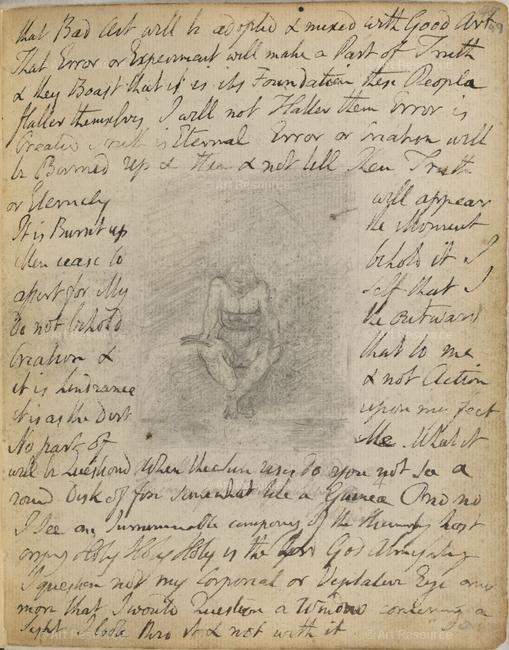 that Bad Art will be adopted & mixed with Good Art
That Error or Experiment will make a Part of Truth
& they Boast that it is its Foundation these People
flatter themselves I will not Flatter them Error is
Created Truth is Eternal Error or Creation will
be Burned Up & then & not till then Truth
or Eternity will appear
It is Burnt up the Moment
Men cease to behold it I
assert for My self that I
do not behold the outward
Creation & that to me
it is hindrance & not Action
it is as the Dirt upon my feet
No part of Me. What it
will be Questiond When the Sun rises do you not See a
round Disk of fire somewhat like a Guinea O no no
I see an Innumerable company of the Heavenly host
crying Holy Holy Holy is the Lord God Almighty
I question not my Corporeal or Vegetative Eye any
more that I would Question a Window concerning a
Sight I look thro it & not with it
Art Resource